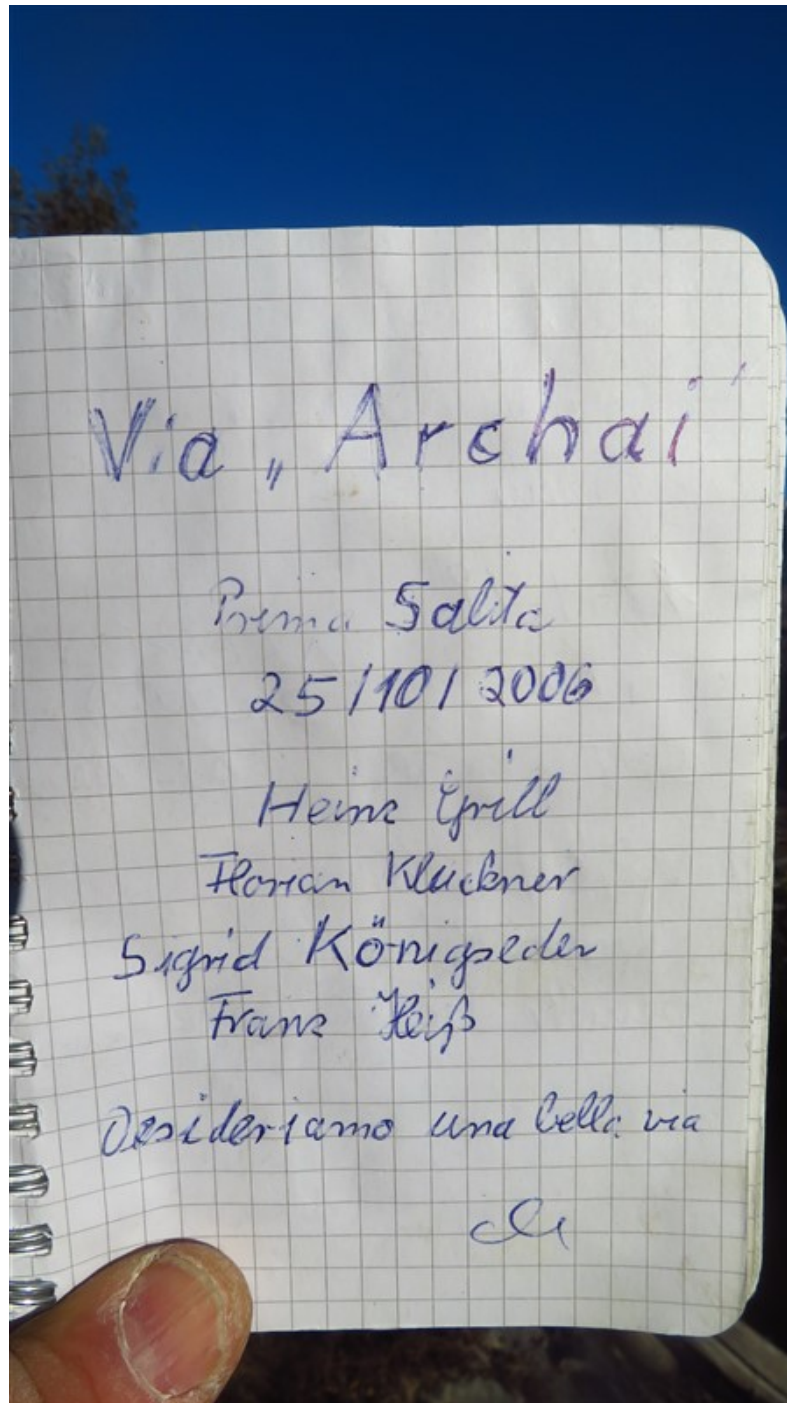 Via „Archai"
Prima Salita
25/10/2006
Heinz Grill
Florian Kluckner
Sigrid Königseder
Franz Heiß
Desideriamo una bella via